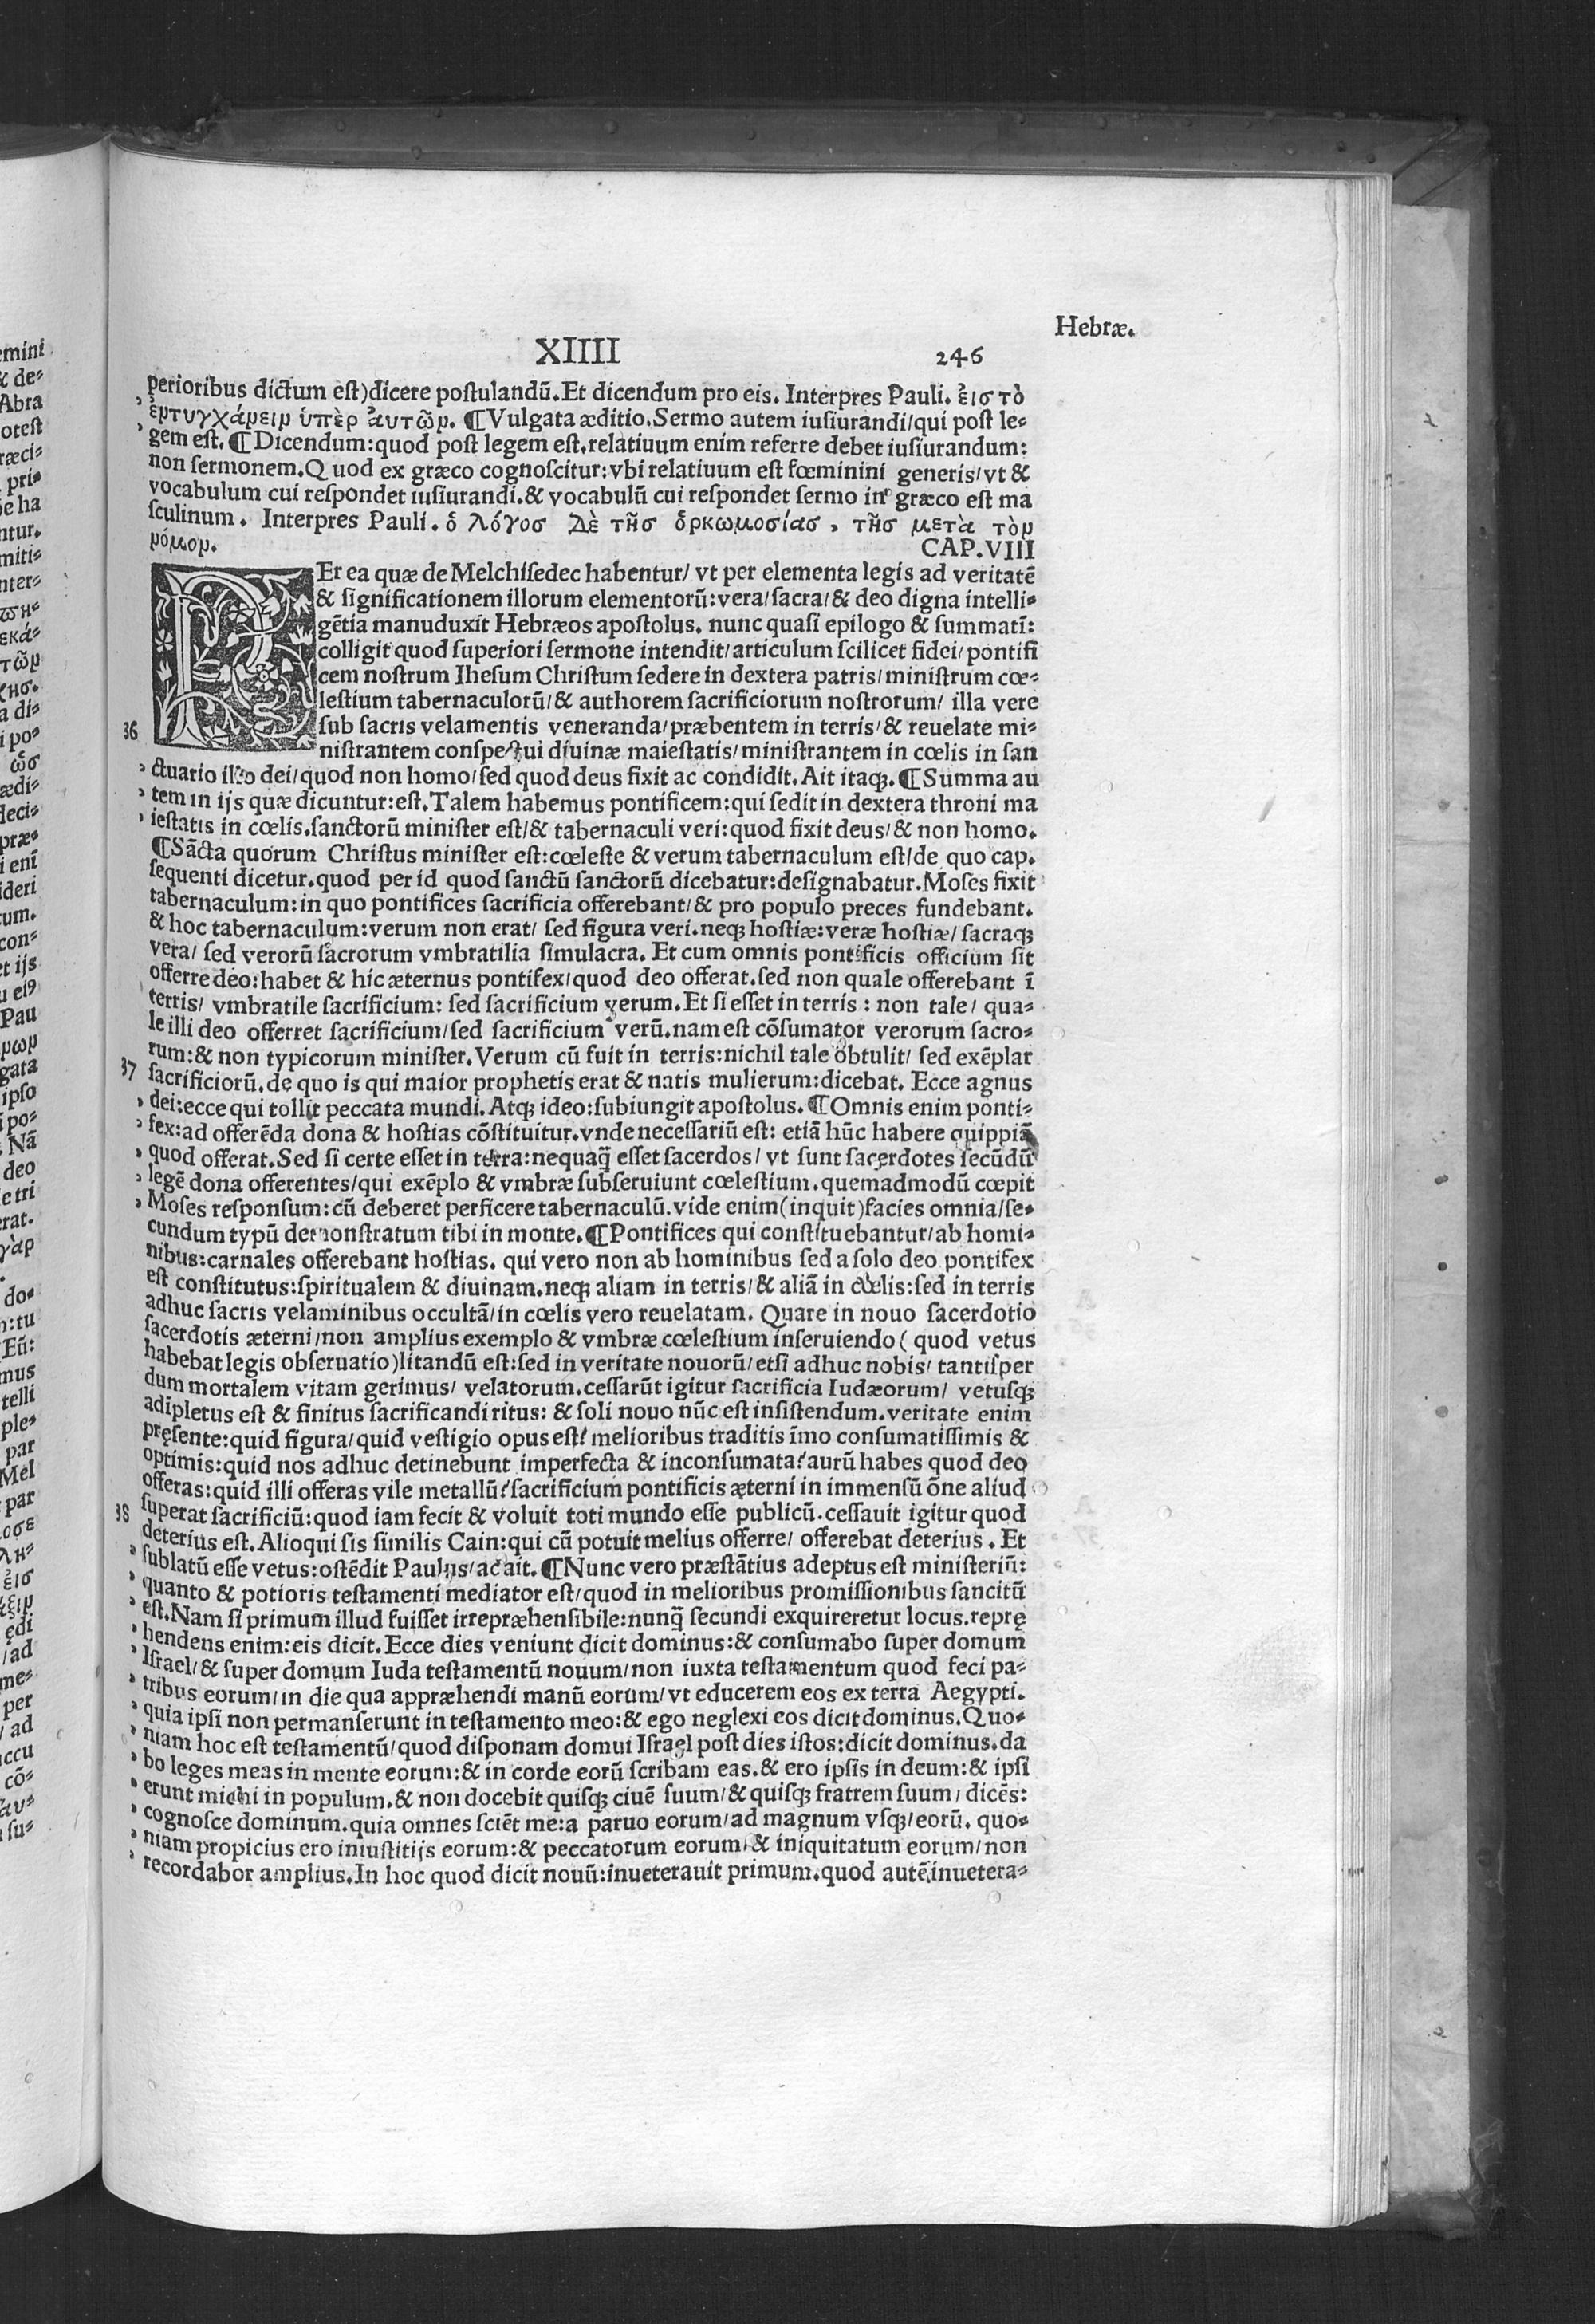 Hebræ.
XIIII 246
perioribus dictum est)dicere postulandū. Et dicendum pro eis. Interpres Pauli. ἐισ τὸ
ἐντυγχάνειν ὑπὲρ ἀυτῶν. ¶Vulgata æditio. Sermo autem iusiurandi/qui post le-
gem est. ¶Dicendum:quod post legem est. relatiuum enim referre debet iusiurandum:
non sermonem. Quod ex græco cognoscitur: vbi relatiuum est fœminini generis/vt &
vocabulum cui respondet iusiurandi. & vocabulū cui respondet sermo in græco est ma
sculinum. Interpres Pauli. ὁ λόγοσ Δὲ τῆσ ὁρκωμοσίασ, τῆσ μετὰ τὸν
νόμον. CAP. VIII
PEr ea quæ de Melchisedec habentur/ vt per elementa legis ad veritatē
& significationem illorum elementorū: vera/sacra/& deo digna intelli-
gētia manuduxit Hebræos apostolus. nunc quasi epilogo & summatī:
colligit quod superiori sermone intendit/articulum scilicet fidei/pontifi
cem nostrum Ihesum Christum sedere in dextera patris/ministrum cœ-
lestium tabernaculorū/& authorem sacrificiorum nostrorum/ illa vere
36 sub sacris velamentis veneranda/præbentem in terris/& reuelate mi-
nistrantem conspectui diuinæ maiestatis/ministrantem in cœlis in san
ctuario illo dei/quod non homo/sed quod deus fixit ac condidit. Ait itaqꝫ. ¶Summa au
tem in ijs quæ dicuntur:est. Talem habemus pontificem:qui sedit in dextera throni ma
iestatis in cœlis. sanctorū minister est/& tabernaculi veri:quod fixit deus/& non homo.
¶Sācta quorum Christus minister est:cœleste & verum tabernaculum est/de quo cap.
sequenti dicetur. quod per id quod sanctū sanctorū dicebatur:designabatur. Moses fixit
tabernaculum:in quo pontifices sacrificia offerebant/& pro populo preces fundebant.
& hoc tabernaculum:verum non erat/ sed figura veri. neqꝫ hostiæ:veræ hostiæ/sacraqꝫ
vera/ sed verorū sacrorum vmbratilia simulacra. Et cum omnis pontificis officium sit
offerre deo:habet & hic æternus pontifex/quod deo offerat. sed non quale offerebant ī
terris/ vmbratile sacrificium: sed sacrificium verum. Et si esset in terris : non tale/ qua-
le illi deo offerret sacrificium/sed sacrificium verū. nam est cōsumator verorum sacro-
rum:& non typicorum minister. Verum cū fuit in terris:nichil tale obtulit/ sed exēplar
37 sacrificiorū. de quo is qui maior prophetis erat & natis mulierum:dicebat. Ecce agnus
dei:ecce qui tollit peccata mundi. Atqꝫ ideo:subiungit apostolus. ¶Omnis enim ponti-
fex:ad offerēda dona & hostias cōstituitur. vnde necessariū est: etiā hūc habere quippiā
quod offerat. Sed si certe esset in terra:nequaq̄ esset sacerdos/ vt sunt sacerdotes secūdū
legē dona offerentes/qui exēplo & vmbræ subseruiunt cœlestium. quemadmodū cœpit
Moses responsum:cū deberet perficere tabernaculū. vide enim(inquit)facies omnia/se-
cundum typū demonstratum tibi in monte. ¶Pontifices qui constituebantur/ab homi-
nibus:carnales offerebant hostias. qui vero non ab hominibus sed a solo deo pontifex
est constitutus:spiritualem & diuinam. neqꝫ aliam in terris/& aliā in cœlis:sed in terris
adhuc sacris velaminibus occultā/in cœlis vero reuelatam. Quare in nouo sacerdotio
sacerdotis æterni/non amplius exemplo & vmbræ cœlestium inseruiendo( quod vetus
habebat legis obseruatio)litandū est:sed in veritate nouorū/etsi adhuc nobis/ tantisper
dum mortalem vitam gerimus/ velatorum. cessarūt igitur sacrificia Iudæorum/ vetusqꝫ
adipletus est & finitus sacrificandi ritus: & soli nouo nūc est insistendum. veritate enim
pręsente:quid figura/quid vestigio opus est? melioribus traditis īmo consumatissimis &
optimis:quid nos adhuc detinebunt imperfecta & inconsumata? aurū habes quod deo
offeras:quid illi offeras vile metallū? sacrificium pontificis ęterni in immensū ōne aliud
38 superat sacrificiū:quod iam fecit & voluit toti mundo esse publicū. cessauit igitur quod
deterius est. Alioqui sis similis Cain:qui cū potuit melius offerre/ offerebat deterius . Et
sublatū esse vetus:ostēdit Paulus/ac ait. ¶Nunc vero præstātius adeptus est ministeriū:
quanto & potioris testamenti mediator est/quod in melioribus promissionibus sancitū
est. Nam si primum illud fuisset irrepræhensibile:nunq̄ secundi exquireretur locus. reprę
hendens enim:eis dicit. Ecce dies veniunt dicit dominus:& consumabo super domum
Israel/& super domum Iuda testamentū nouum/non iuxta testamentum quod feci pa-
tribus eorum/in die qua appræhendi manū eorum/vt educerem eos ex terra Aegypti.
quia ipsi non permanserunt in testamento meo:& ego neglexi eos dicit dominus. Quo-
niam hoc est testamentū/quod disponam domui Israel post dies istos:dicit dominus. da
bo leges meas in mente eorum:& in corde eorū scribam eas. & ero ipsis in deum:& ipsi
erunt michi in populum. & non docebit quisqꝫ ciuē suum/& quisqꝫ fratrem suum/ dicēs:
cognosce dominum. quia omnes sciēt me:a paruo eorum/ad magnum vsqꝫ/eorū. quo-
niam propicius ero iniustitijs eorum:& peccatorum eorum/& iniquitatum eorum/non
recordabor amplius. In hoc quod dicit nouū:inueterauit primum. quod autē inuetera-